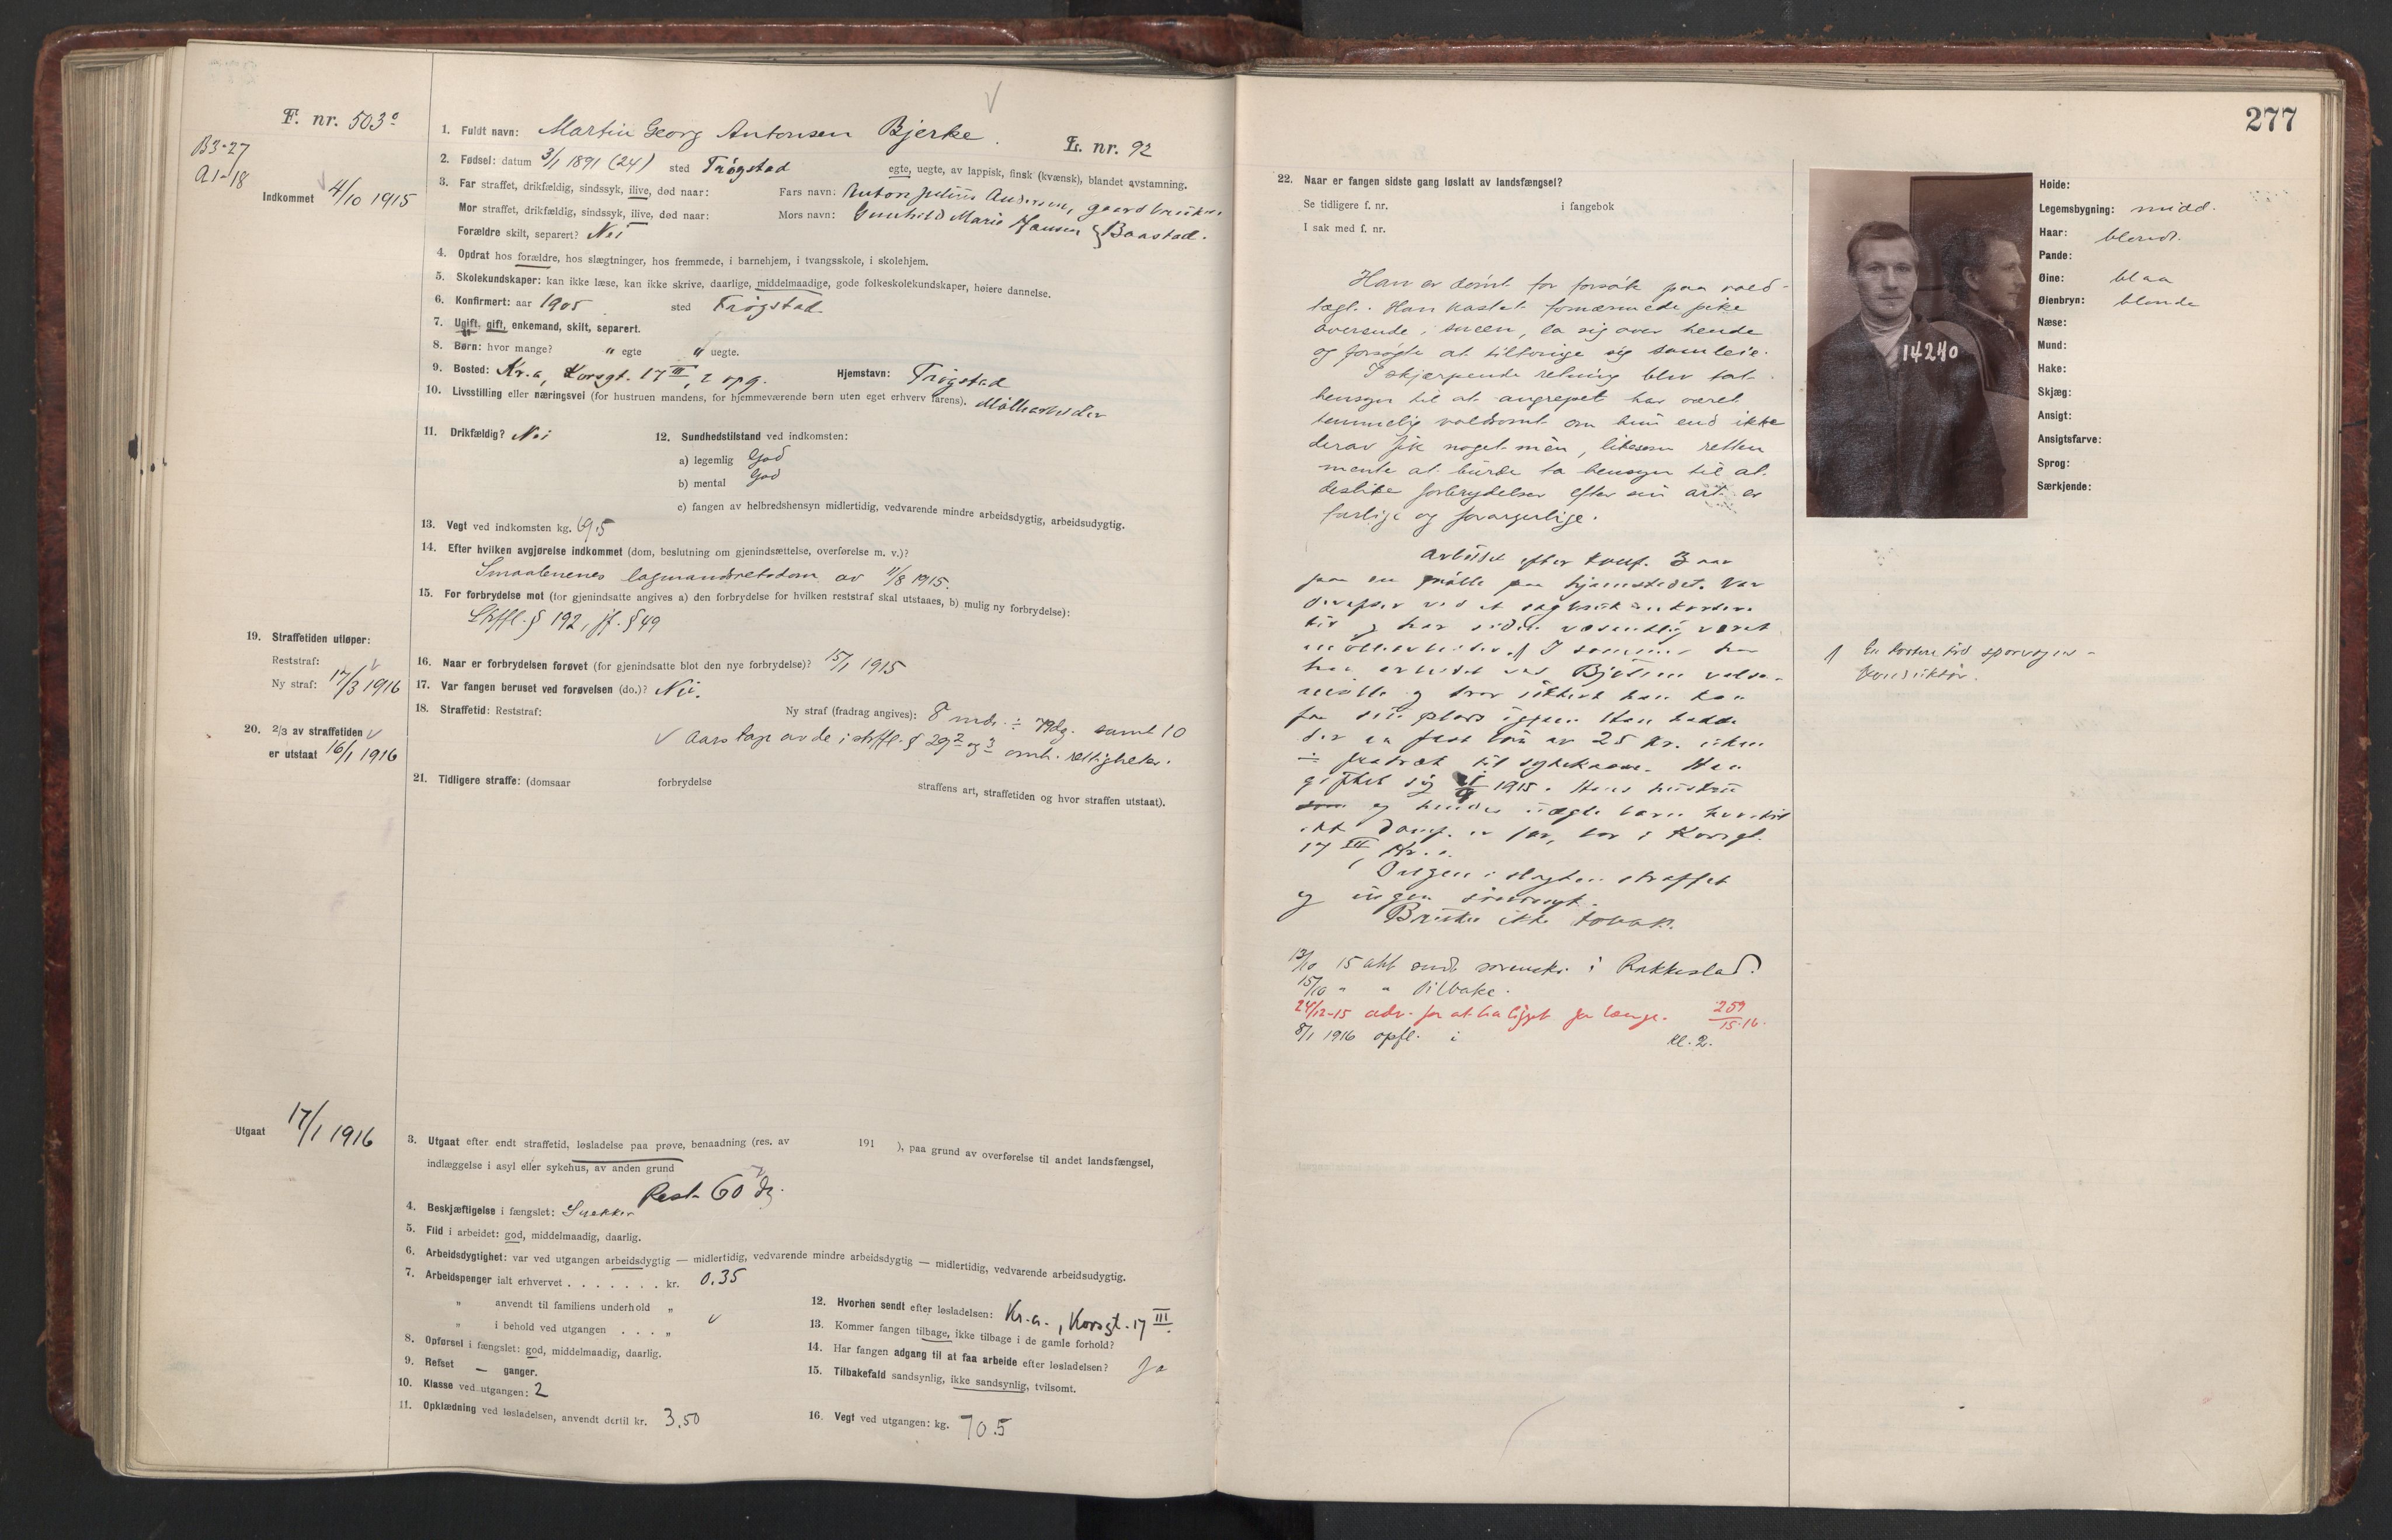 277
F. nr. 503
B3-27
A1-18
Indkommet 4/10 1915
1. Fuldt navn: Martin Georg Antonsen Bjerke.
L. nr. 92
2. Fødsel: datum 3/1 1891 (24) sted Trøgstad egte, uegte, av lappisk, finsk (kvænsk), blandet avstamning.
3. Far straffet, drikfældig, sindssyk, ilive, død naar: Fars navn: Anton Julius Andersen, gaardbruker
Mor straffet, drikfældig, sindssyk, ilive, død naar: Mors navn: Gunhild Marie Hansen } Baastad.
Forældre skilt, separert? Nei
4. Opdrat hos forældre, hos slægtninger, hos fremmede, i barnehjem, i tvangsskole, i skolehjem.
5. Skolekundskaper: kan ikke læse, kan ikke skrive, daarlige, middelmaadige, gode folkeskolekundskaper, høiere dannelse.
6. Konfirmert: aar 1905 sted Trøgstad
7. Ugift, gift, enkemand, skilt, separert.
8. Børn: hvor mange? " egte " uegte.
9. Bosted: Kr.a, Korsgt. 17 III, 2 opg. Hjemstavn: Trøgstad
10. Livsstilling eller næringsvei (for hustruen mandens, for hjemmeværende børn uten eget erhverv farens). Møllearbeider
11. Drikfældig? Nei
12. Sundhedstilstand ved indkomsten:
a) legemlig God
b) mental God
c) fangen av helbredshensyn midlertidig, vedvarende mindre arbeidsdygtig, arbeidsudygtig.
13. Vegt ved indkomsten kg. 69.5
14. Efter hvilken avgjørelse indkommet (dom, beslutning om gjenindsættelse, overførelse m. v.)?
Smaalenenes lagmandsretsdom av 11/8 1915.
15. For forbrydelse mot (for gjenindsatte angives a) den forbrydelse for hvilken reststraf skal utstaaes, b) mulig ny forbrydelse):
Strffl. § 192, jf. § 49
16. Naar er forbrydelsen forøvet (for gjenindsatte blot den nye forbrydelse)? 15/1 1915
17. Var fangen beruset ved forøvelsen (do.)? Nei.
18. Straffetid: Reststraf: Ny straf (fradrag angives): 8 mdr. ÷ dg. samt 10
aars tap av de i strffl. § 29 2 og 3 omh. rettigheter.
19. Straffetiden utløper:
Reststraf:
Ny straf: 17/3 1916
20. 2/3 av straffetiden
er utstaat 16/1 1916
21. Tidligere straffe: (domsaar forbrydelse straffens art, straffetiden og hvor straffen utstaat).
Utgaat 17/1 1916
3. Utgaat efter endt straffetid, løsladelse paa prøve, benaadning (res. av 191 ), paa grund av overførelse til andet landsfængsel,
indlæggelse i asyl eller sykehus, av anden grund
Rest 60 dg.
4. Beskjæftigelse i fængslet: Snekker
5. Flid i arbeidet: god, middelmaadig, daarlig.
6. Arbeidsdygtighet: var ved utgangen arbeidsdygtig — midlertidig, vedvarende mindre arbeidsdygtig — midlertidig, vedvarende arbeidsudygtig.
7. Arbeidspenger ialt erhvervet . . . . . . . kr. 0.35
" anvendt til familiens underhold "
" i behold ved utgangen . . . "
8. Opførsel i fængslet: god, middelmaadig, daarlig.
9. Refset — ganger.
10. Klasse ved utgangen: 2
11. Opklædning ved løsladelsen, anvendt dertil kr. 3.50
12. Hvorhen sendt efter løsladelsen: Kr.a., Korsgt. 17 III.
13. Kommer fangen tilbage, ikke tilbage i de gamle forhold?
14. Har fangen adgang til at faa arbeide efter løsladelsen? Ja
15. Tilbakefald sandsynlig, ikke sandsynlig, tvilsomt.
16. Vegt ved utgangen: kg. 70.5
22. Naar er fangen sidste gang løslatt av landsfængsel?
Se tidligere f. nr. i fangebok
I sak med f. nr.
Han er dømt for forsøk paa vold-
tægt. Han kastet fornærmede pike
overende i sneen, la sig over hende
og forsøgte at tiltvinge sig samleie.
I skjærpende retning blev tat
hensyn til at angrepet har været
temmelig voldsomt om hun end ikke
derav fik noget mén, likesom retten
mente at burde ta hensyn til at
deslike forbrydelser efter sin art er
farlige og forargerlige.
Arbeidet efter konf. 3 aar
paa en mølle paa hjemstedet. Var
derefter ved et sagbruk en kortere
tid og har siden væsentlig været
møllearbeider. I sommer har
han arbeidet ved Bjølsen valse-
mølle og tror sikkert han kan
faa sin plads igjen. Han hadde
der en fast løn av 25 kr. uken
÷ fradrag til sykekasse. Han
giftet sig 1915. Hans hustru
og hendes uægte barn hvortil
ikke domf. er far, bor i Korsgt.
17 III, Kr.a.
Ingen i slegten straffet
og ingen sindssyk.
Bruker ikke tobak.
13/10 15 avh. sendt svenske i Rakkestad.
15/10 " " tilbake.
24/12-15 adv. for at ha ligget for længe. 259/15-16.
8/1 1916 opfl. i kl. 2.
En kortere tid sporvogns-
konduktør.
14240
Høide:
Legemsbygning: midd.
Haar: blondt.
Pande:
Øine: blaa
Øienbryn: blonde
Næse:
Mund:
Hake:
Skjæg:
Ansigt:
Ansigtsfarve:
Sprog:
Særkjende: